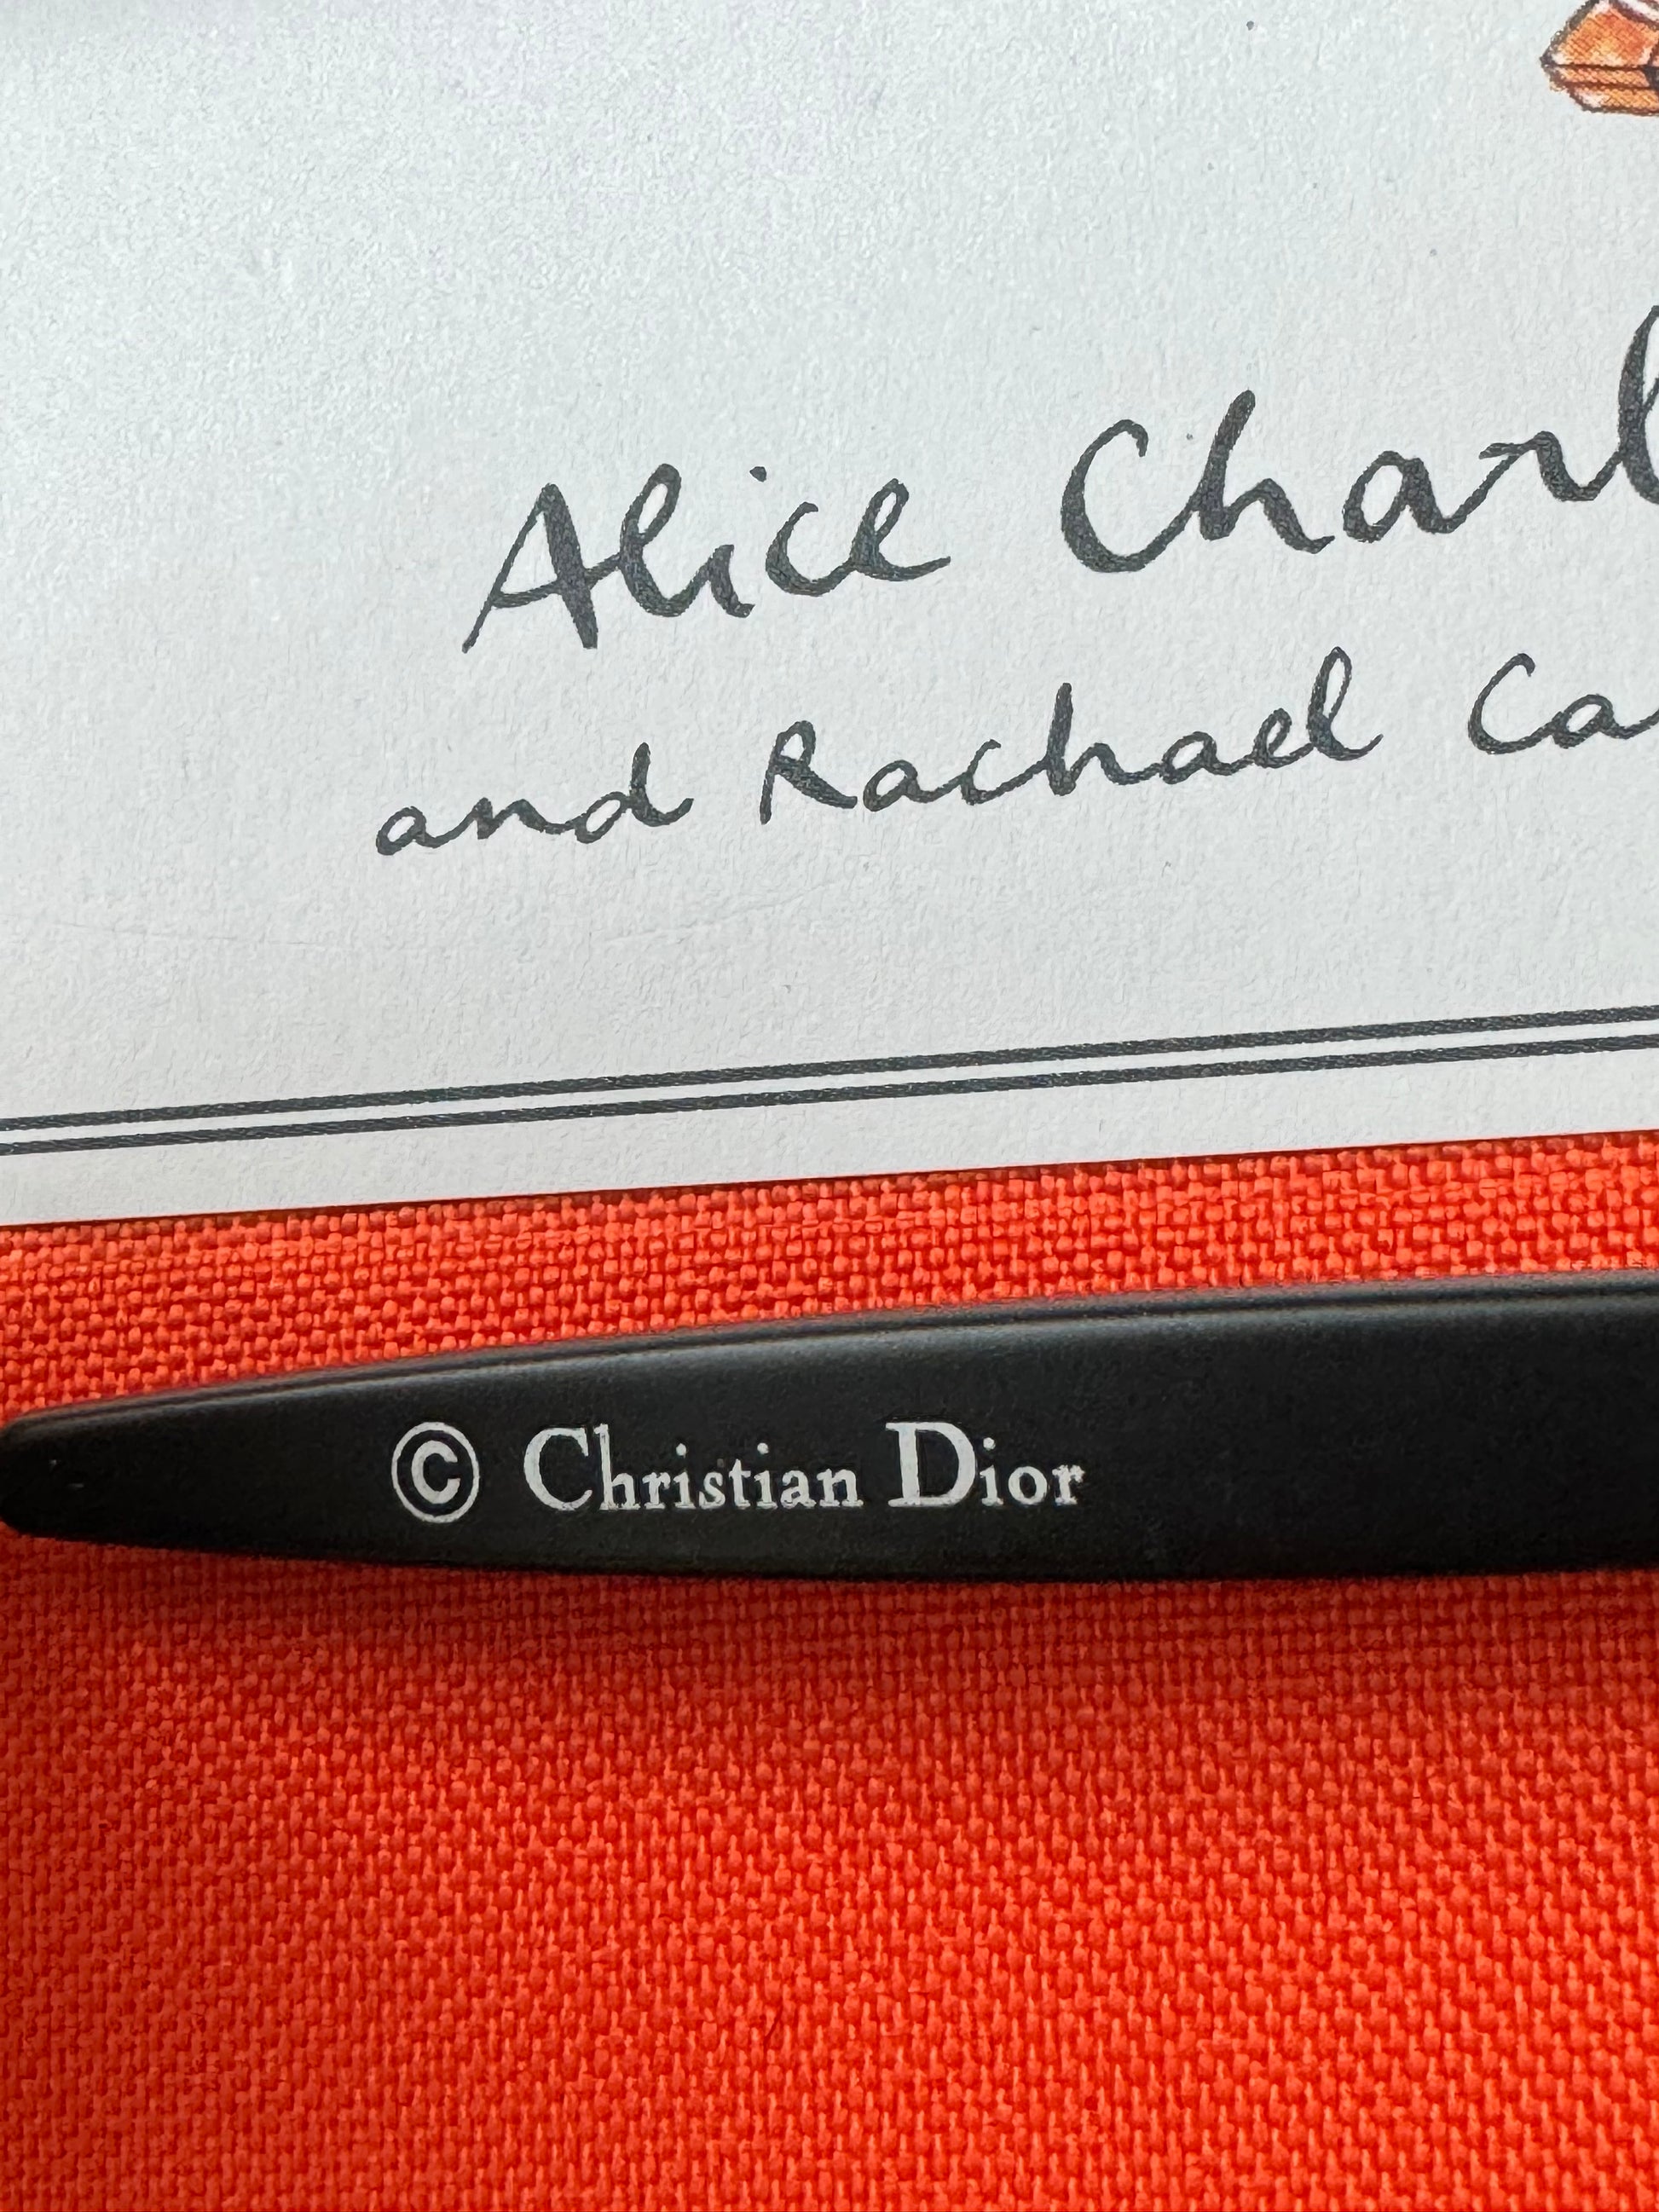 Alice Charl
and Rachael Ca
© Christian Dior